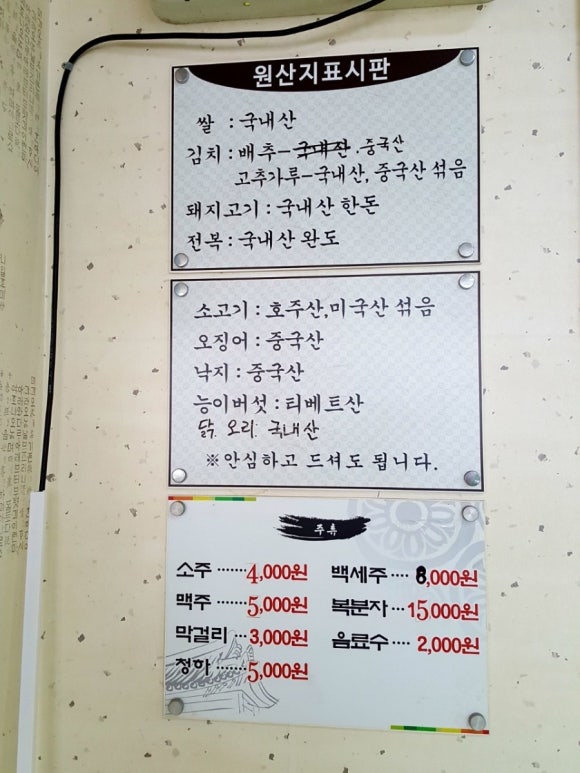 원산지표시판
쌀 : 국내산
김치 : 배추-국내산 .중국산
고추가루-국내산, 중국산 섞음
돼지고기 : 국내산 한돈
전복 : 국내산 완도
소고기 : 호주산,미국산 섞음
오징어 : 중국산
낙지 : 중국산
능이버섯 : 티베트산
닭. 오리. 국내산
※안심하고 드셔도 됩니다.
주류
소주 ······· 4,000원 백세주 ···· 8,000원
맥주 ······· 5,000원 복분자 ··· 15,000원
막걸리 ··· 3,000원 음료수 ···· 2,000원
청하 ······· 5,000원